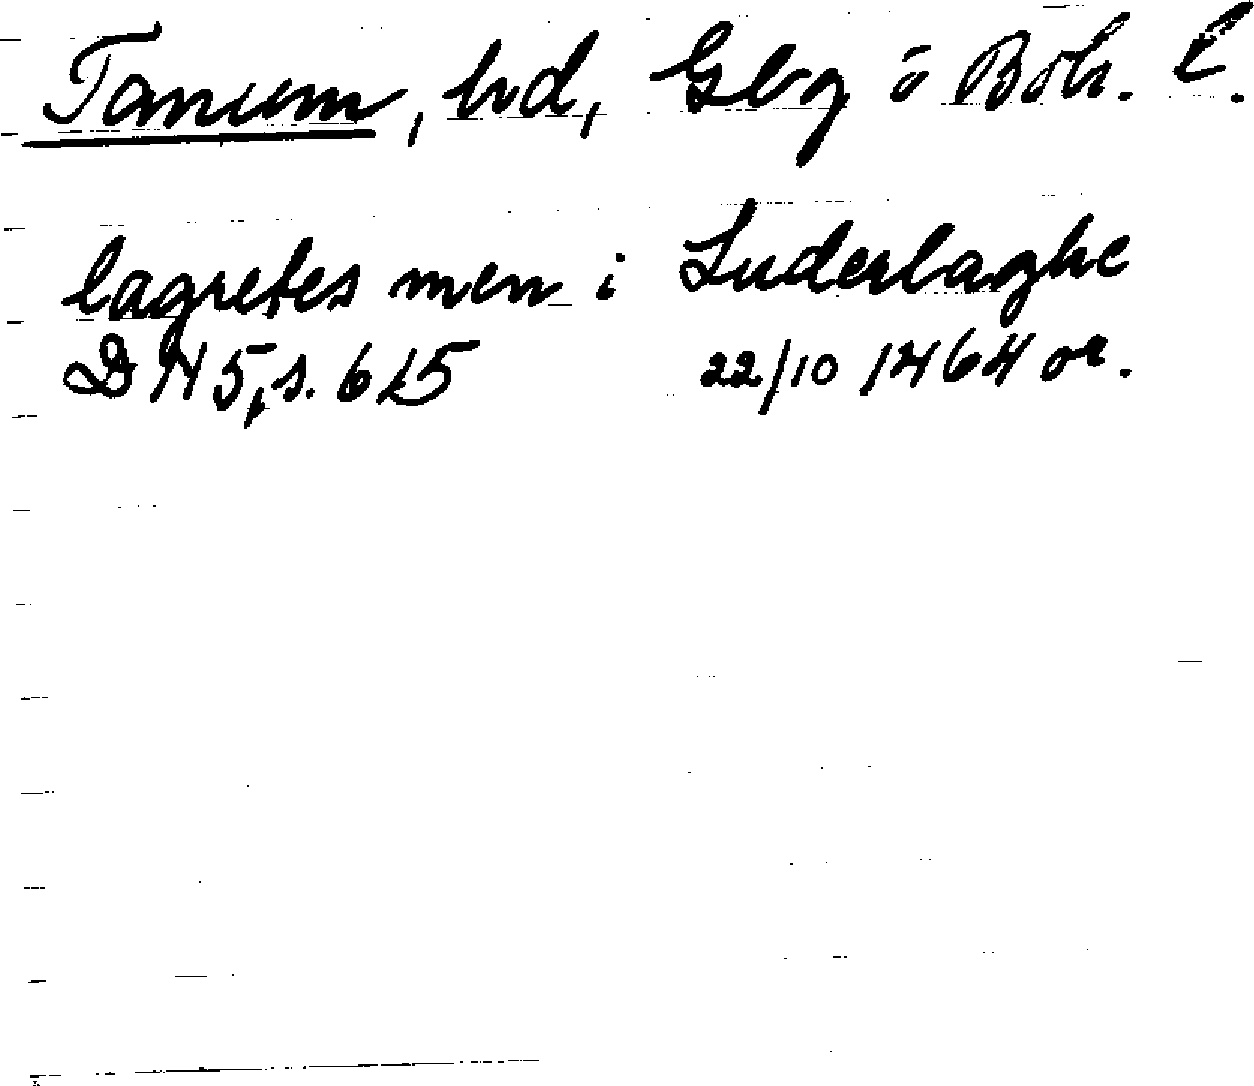 Tanum, hd, Gbg o Boh. l.
lagretes men i Suderlaghe
DN 5, s. 615 22/10 1464 or.